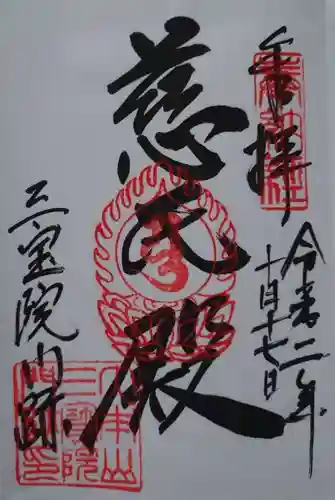 奉拝
令和二年
十月十七日
慈氏殿
三宝院門跡
三寶院